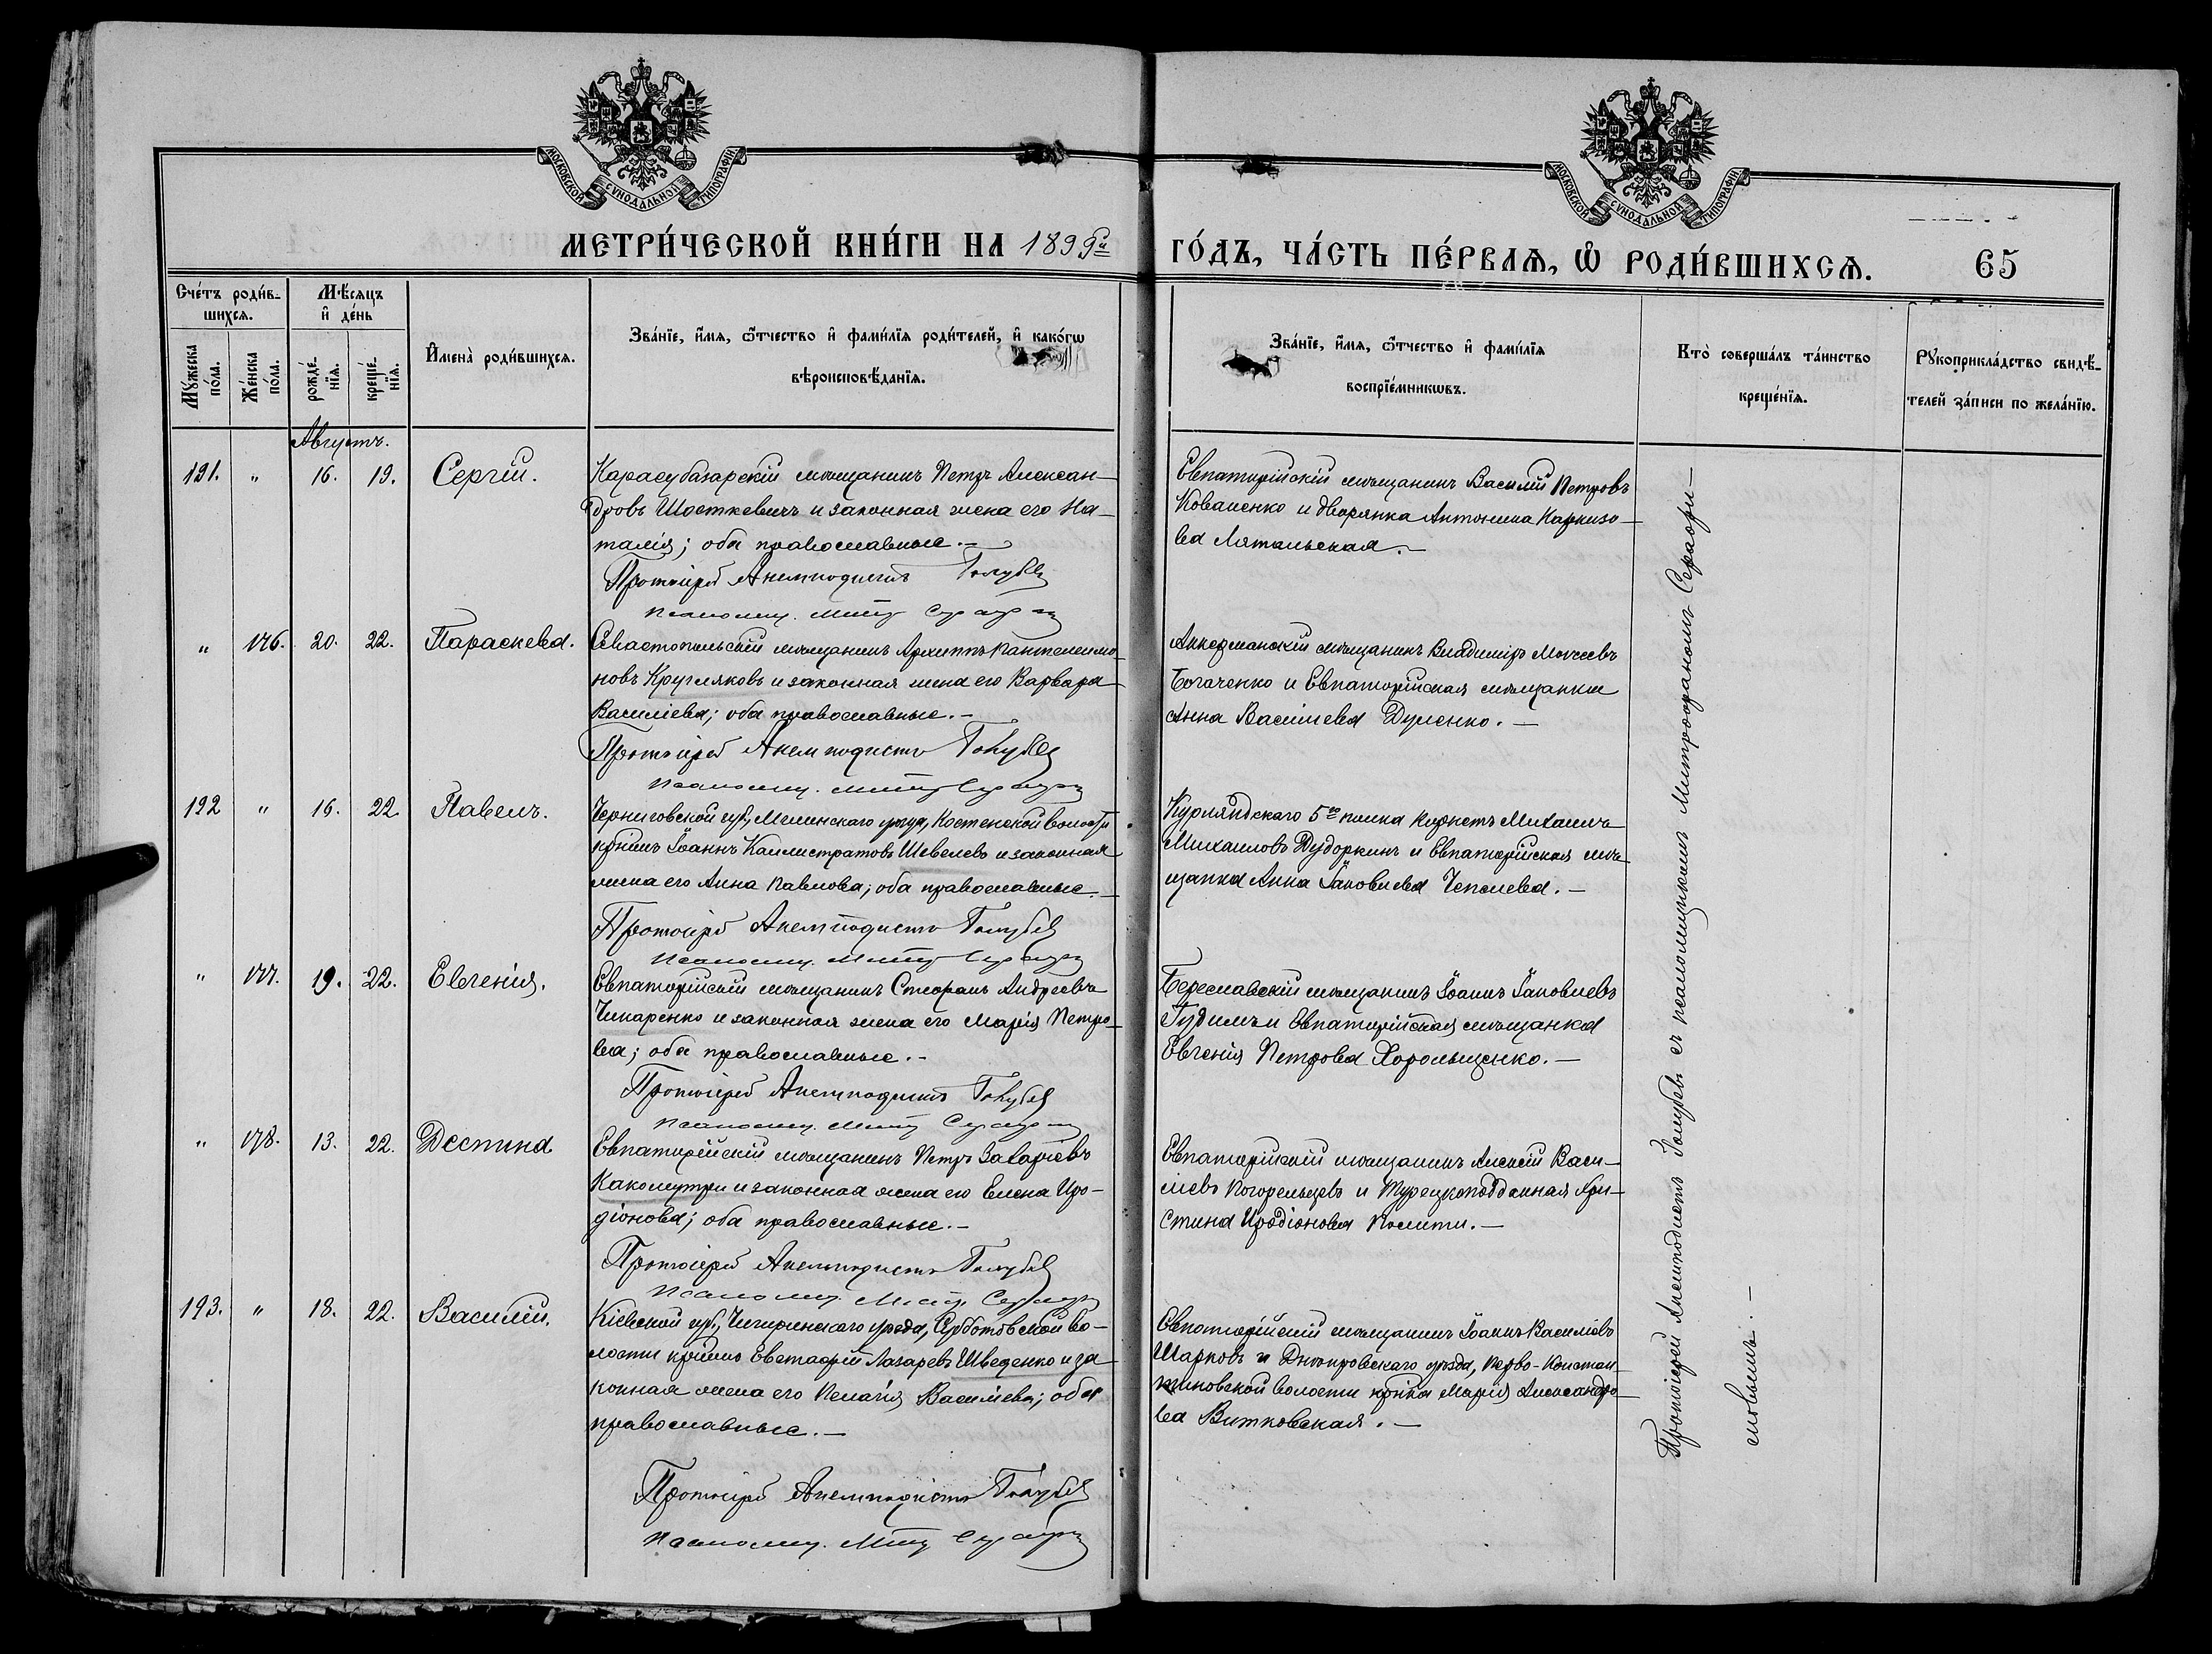 МОСКОВСКОЙ СѴНОДАЛЬНОЙ ТИПОГРАФІИ
МОСКОВСКОЙ СѴНОДАЛЬНОЙ ТИПОГРАФІИ
МЕТРИ́ЧЕСКОЙ КНИ́ГИ НА 1899й ГО́ДЪ, ЧА́СТЬ ПЕ́РВАѦ, Ѡ҆ РОДИ́ВШИХСѦ.
65
Сче́тъ роди́в-
шихсѧ.
Мѣ́сѧцъ
и҆ де́нь
Мꙋ́жеска
по́ла.
Же́нска
по́ла.
рожде́-
нїѧ.
креще́-
нїѧ.
И҆мена̀ роди́вшихсѧ.
Зва́нїе, и҆́мѧ, ѻ҆́тчество и҆ фами́лїѧ роди́телей, и҆ како́гѡ
вѣроисповѣ́данїѧ.
Зва́нїе, и҆́мѧ, ѻ҆́тчество и҆ фами́лїѧ
воспрїе́мникѡвъ.
Кто̀ соверша́лъ та́инство
креще́нїѧ.
Рꙋкоприкла́дство свидѣ́-
телей за́писи по жела́нїю.
Августъ.
191. " 16. 19. Сергій.
Карасубазарскій мѣщанинъ Петръ Алексан-
дровъ Шосткевичъ и законная жена его На-
талія; оба православные.-
Протоіерей Анемподистъ Голубев
Псаломщ. Митр. Серафи
Евпаторійскій мѣщанинъ Василій Петровъ
Коваленко и дворянка Антонина
ва Лятальская.-
" 176. 20. 22. Параскева.
Севастопольскій мѣщанинъ Архиппъ Пантелеимо-
новъ Кругляковъ и законная жена его Варвара
Василіева; оба православные.-
Протоіерей Анемподистъ Голубев
Псаломщ. Митр. Серафи
Аккерманскій мѣщанинъ Владиміръ Моисеевъ
Богаченко и Евпаторійская мѣщанка
Анна Василіева Дуленко.-
192 " 16. 22 Павелъ.
Черниговской губ., уѣзда, Костенской волости
крѣнинъ Іоаннъ Каллистратовъ Шевелевъ и законная
жена его Анна Павлова; оба православные.-
Протоіерей Анемподистъ Голубев
Псаломщ. Митр. Серафи
Курляндскаго 5го полка Корнетъ Михаилъ
Михаиловъ Дудоркинъ и Евпаторійская мѣ-
щанка Анна Іаковлева Чепелева.-
" 177. 19. 22. Евгенія.
Евпаторійскій мѣщанинъ Стефанъ Андреевъ
Чикаренко и законная жена его Марія Петро-
ва; оба православные.-
Протоіерей Анемподистъ Голубев
Псаломщ. Митр. Серафи
Береславскій мѣщанинъ Іоаннъ Іаковлевъ
Гудимъ и Евпаторійская мѣщанка
Евгенія Петрова Хорольщенко.-
" 178. 13. 22. Деспина
Евпаторійскій мѣщанинъ Петръ Захаріевъ
Какомутри и законная жена его Елена Иро-
діонова; оба православные.-
Протоіерей Анемподистъ Голубев
Псаломщ. Митр. Серафи
Евпаторійскій мѣщанинъ Алексій Васи-
ліевъ Погорельцевъ и Турецкоподданная Хри-
стина Иродіонова Полити.-
193. " 18. 22. Василій.
Кіевской губ., Чигиринскаго уѣзда, Субботовской во-
лости крѣнинъ Евстафій Лазаревъ Шведенко и за-
конная жена его Пелагія Василіева; оба
православные.-
Протоіерей Анемподистъ Голубев
Псаломщ. Митр. Серафи
Евпаторійскій мѣщанинъ Іоаннъ Василіевъ
Шарковъ и Днѣпровскаго уѣзда, Перво-Констан-
тиновской волости крѣнка Марія Александро-
ва Витковская.-
Протоіерей Анемподистъ Голубевъ съ псаломщикомъ Митрофаномъ Серафи-
мовымъ.-